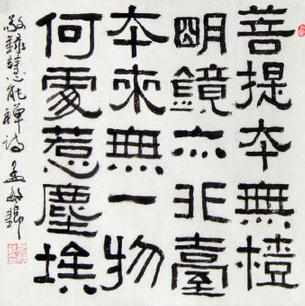 菩提本無樹
明鏡亦非臺
本來無一物
何處惹塵埃
敬錄慧能禪詩